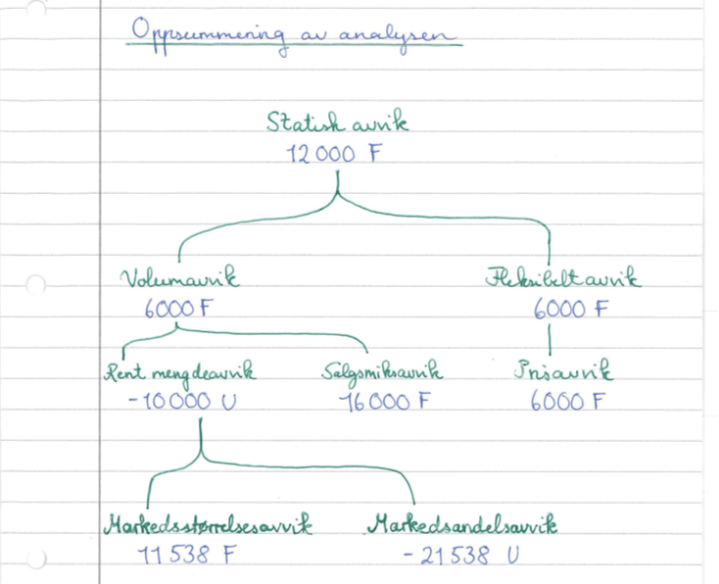 Oppsummering av analysen
Statisk avvik
12 000 F
Volumavvik
6000 F
Fleksibelt avvik
6000 F
Rent mengdeavvik
-10 000 U
Salgsmiksavvik
16 000 F
Prisavvik
6000 F
Markedsstørrelsesavvik
11 538 F
Markedsandelsavvik
- 21 538 U